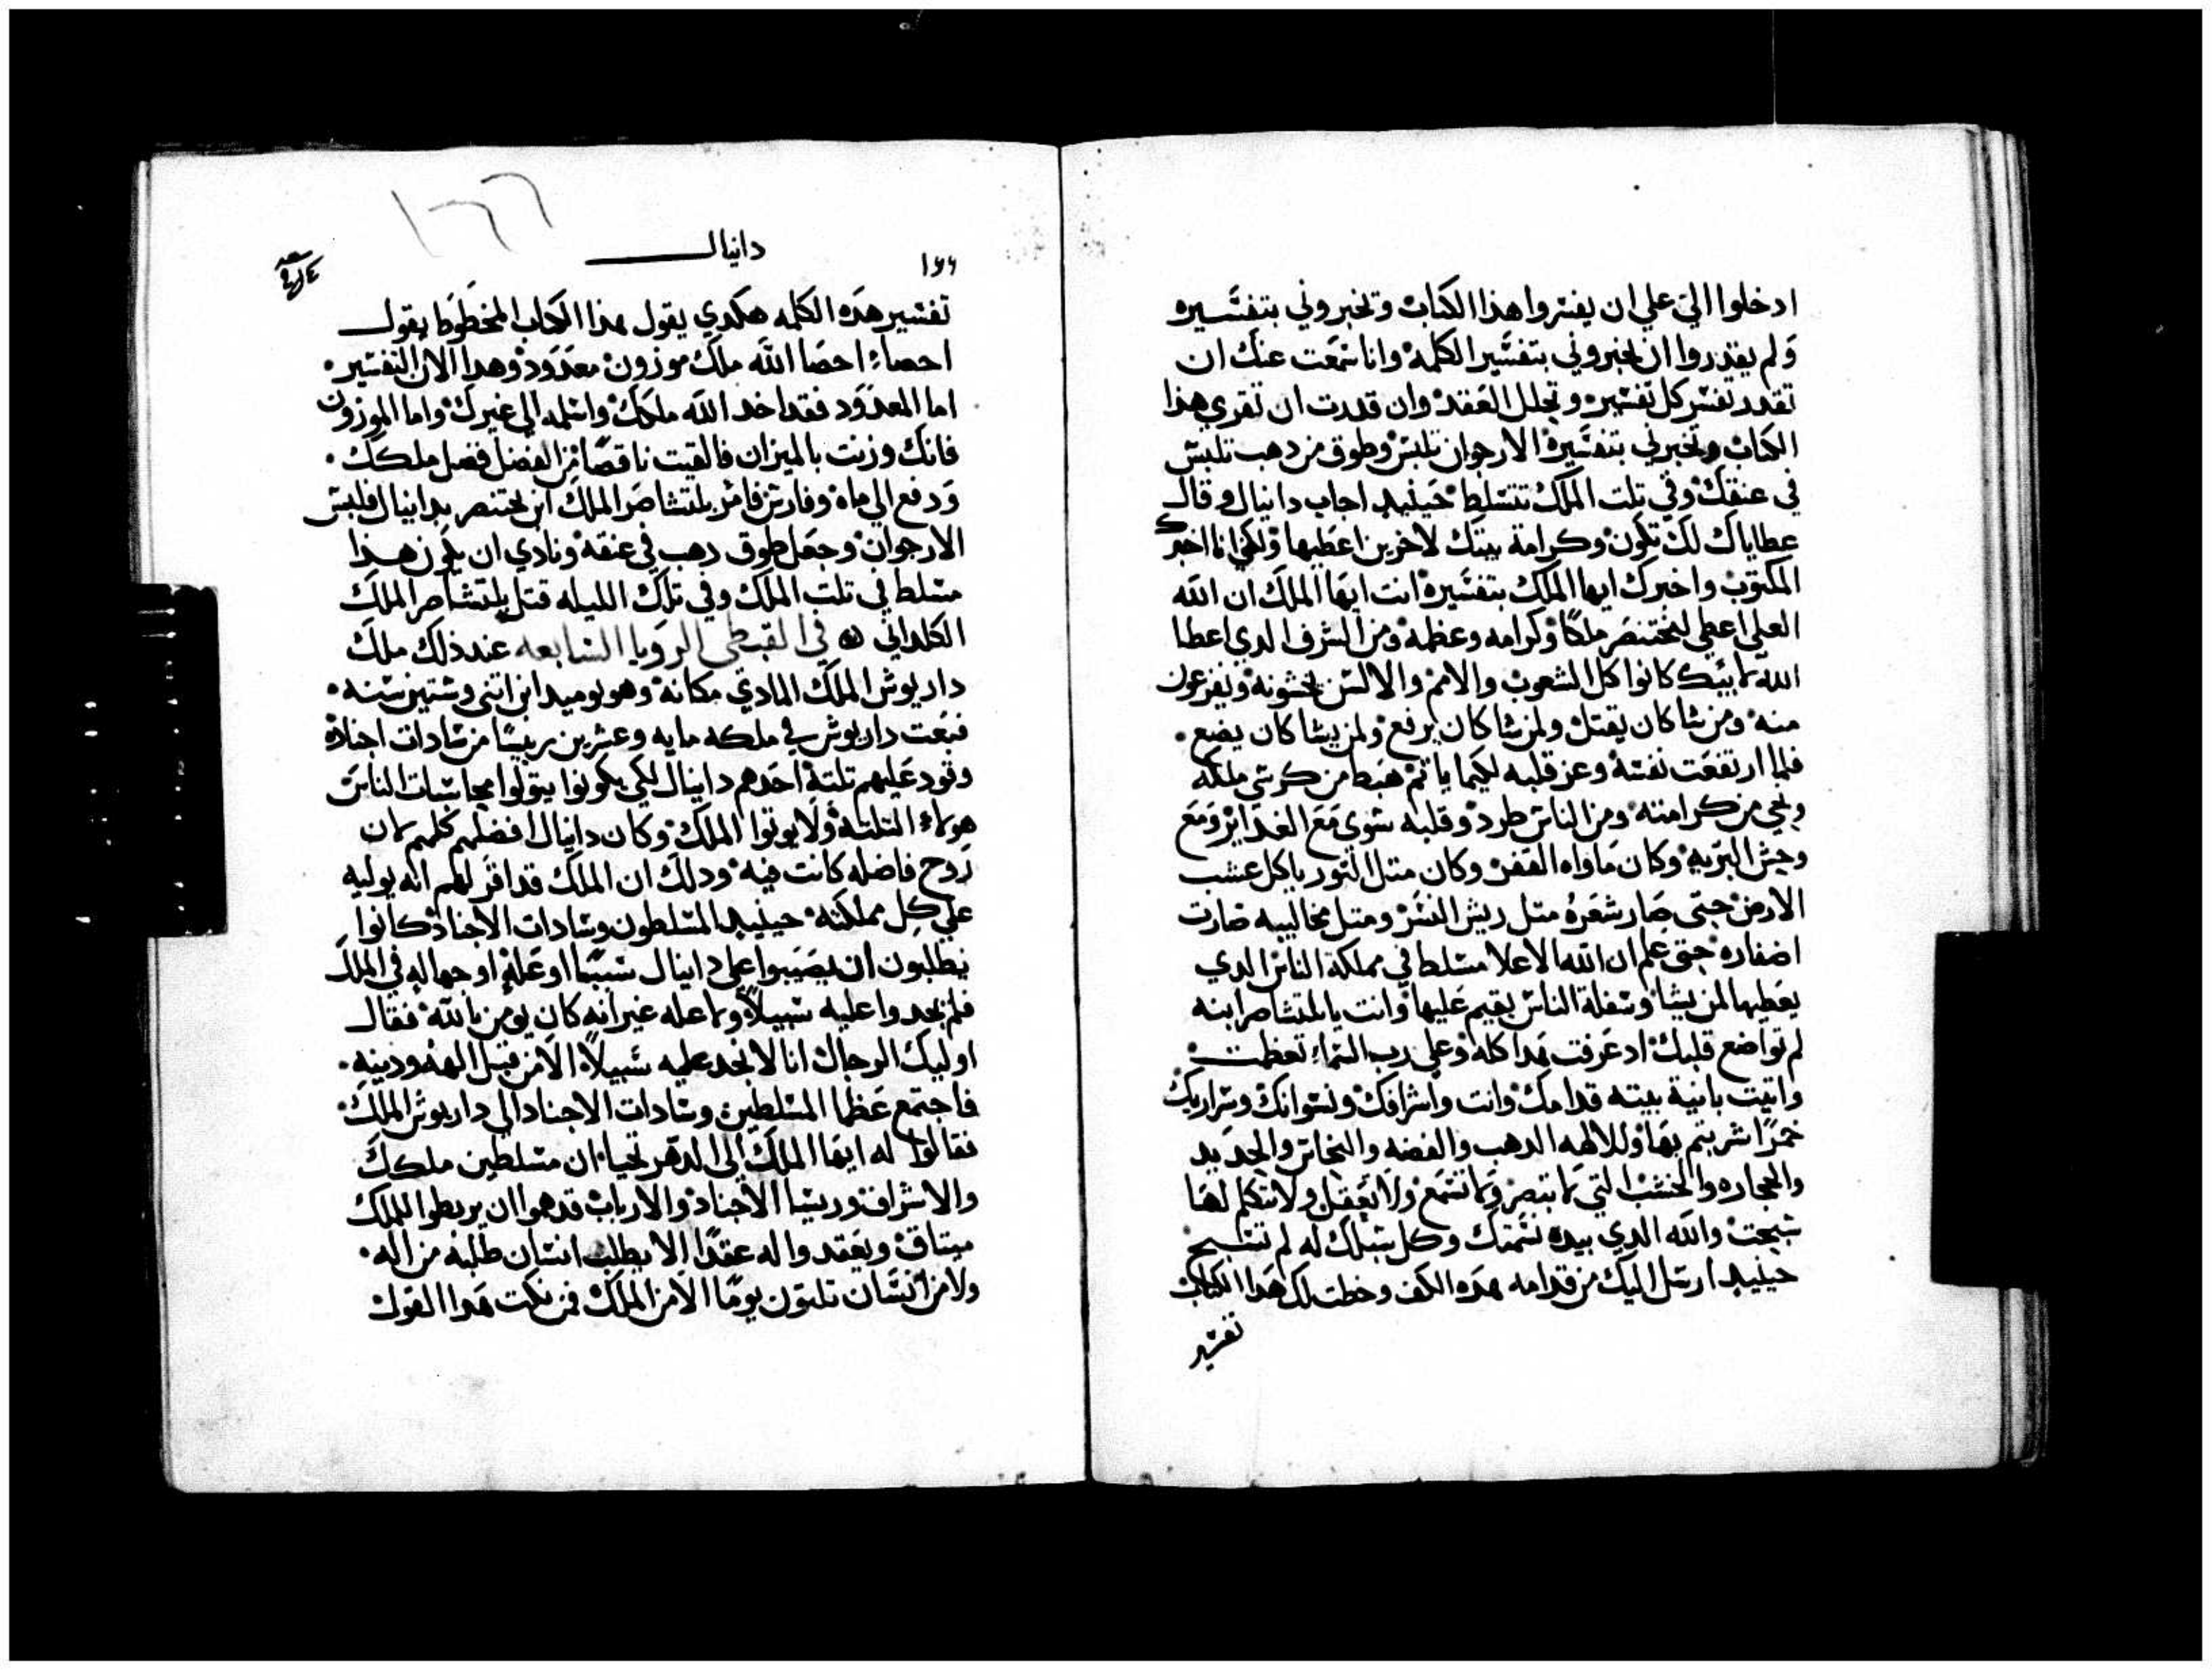 ادخلوا الي علي ان يفسروا هذا الكتاب وتخبروني بتفسيره
ولم يقدروا ان يخبروني بتفسير الكلمة وانا سمعت عنك ان
تقدر تفسر كل تفسير وتحلل العقد وان قدرت ان تقري هذا
الكتاب وتخبرني بتفسيره الارجوان تلبس وطوق من دهب تلبس
في عنقك وفي تلت الملك تتسلط حينيد اجاب دانيال وقال
عطاياك لك تكون وكرامة بيتك لاخرين اعطيها ولكني انا اخبرك
المكتوب واخبرك ايها الملك بتفسيره انت ايها الملك ان الله
العلي اعطي لبختنصر ملكا وكرامه وعظمة ومن الشرف الدي اعطا
الله لابيك كانوا كل الشعوب والامم والالسن يخشونه ويفزعون
منه ومن شا كان يقتل ولمن شا كان يرفع ولمن يشا كان يضع
فلما ارتفعت نفسه وعز قلبه لكيما ياتم هبط من كرسي ملكه
ونحي من كرامته ومن الناس طرد وقلبه سوي مع الغدايز ومع
وحش البريه وكان ماواه القفر وكان متل التور ياكل عشب
الارض حتى صار شعره متل ريش النسر ومتل مخاليبه صارت
اضفاره حتى علم ان الله الاعلا مسلط في مملكة الناس الدي
يعطيها لمن يشا وسفلة الناس يقيم عليها وانت يا بلتشاصر ابنه
لم تواضع قلبك اد عرفت هدا كله وعلي رب السماء تعظمت
واتيت بانية بيته قدامك وانت واشرافك ونسوانك وسراريك
خمرًا شربتم بها وللالهه الدهب والفضه والنحاس والحديد
والحجاره والخشب التي لا تبصر ولا تسمع ولا تعقل ولا تتكلم لها
سبحت والله الدي بيده نسمتك وكل سبلك له لم تسبح
حينيد ارسل اليك من قدامه هده الكف وخطت لك هدا الكتاب
تفسير
دانيال
١٦٦
تفسير هده الكلمه هكدي يقول هذا الكتاب المخطوط يقول
احصاء احصا الله ملك موزون معدود وهدا الان التفسير
اما المعدود فقد اخد الله ملكك واسلمه الي غيرك واما الموزون
فانك وزنت بالميزان فالقيت ناقصًا من الفضل فصل ملكك
ودفع الي ماه وفارس فامر بلتشاصر الملك ابن بختنصر بدانيال فلبس
الارجوان وجعل طوق دهب في عنقه ونادي ان يكون هذا
مسلط في تلت الملك وفي تلك الليله قتل بلتشاصر الملك
الكلداني في القبطي الرويا السابعه عند ذلك ملك
داريوش الملك المادي مكانه وهو يوميد ابن اتنى وستين سنه
فبعت داريوش في ملكه مايه وعشرين رييسًا من سادات اجناده
وقود عليهم تلتة احدهم دانيال لكي يكونوا يتولوا محاسبات الناس
هولاء التلتة ولا يوتوا الملك وكان دانيال افضلهم كلهم لان
روح فاضله كانت فيه ودلك ان الملك قد اقر لهم انه يوليه
علي كل مملكته حينيد المسلطون وسادات الاجناد كانوا
يطلبون ان يصيبوا علي دانيال سببًا او علة او جهاله في الملك
فلم يجدوا عليه سبيلاً ولا عله غير انه كان يومن بالله فقال
اوليك الرجال انا لا نجد عليه سبيلاً الا من قبل الهه ودينه
فاجتمع عظما المسلطين وسادات الاجناد الي داريوش الملك
فقالوا له ايها الملك الي الدهر تحيا ان مسلطين ملكك
والاشراف وريسا الاجناد والارباب قد هموا ان يربطوا للملك
ميتاق ويعقدوا له عقدًا الا يطلب انسان طلبه من اله
ولا من انسان تلتون يومًا الا من الملك فمن نكت هدا القول